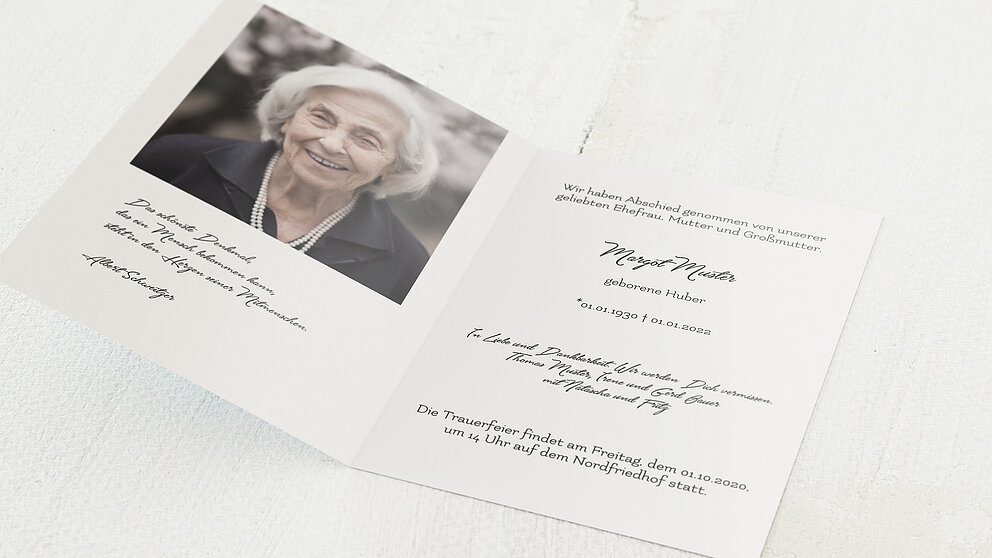 Das schönste Denkmal,
das ein Mensch bekommen kann,
steht in den Herzen seiner Mitmenschen.
Albert Schweitzer
Wir haben Abschied genommen von unserer
geliebten Ehefrau, Mutter und Großmutter.
Margot Muster
geborene Huber
*01.01.1930 † 01.01.2022
In Liebe und Dankbarkeit: Wir werden Dich vermissen.
Thomas Muster, Irene und Gerd Bauer
mit Natascha und Fritz
Die Trauerfeier findet am Freitag, dem 01.10.2020,
um 14 Uhr auf dem Nordfriedhof statt.